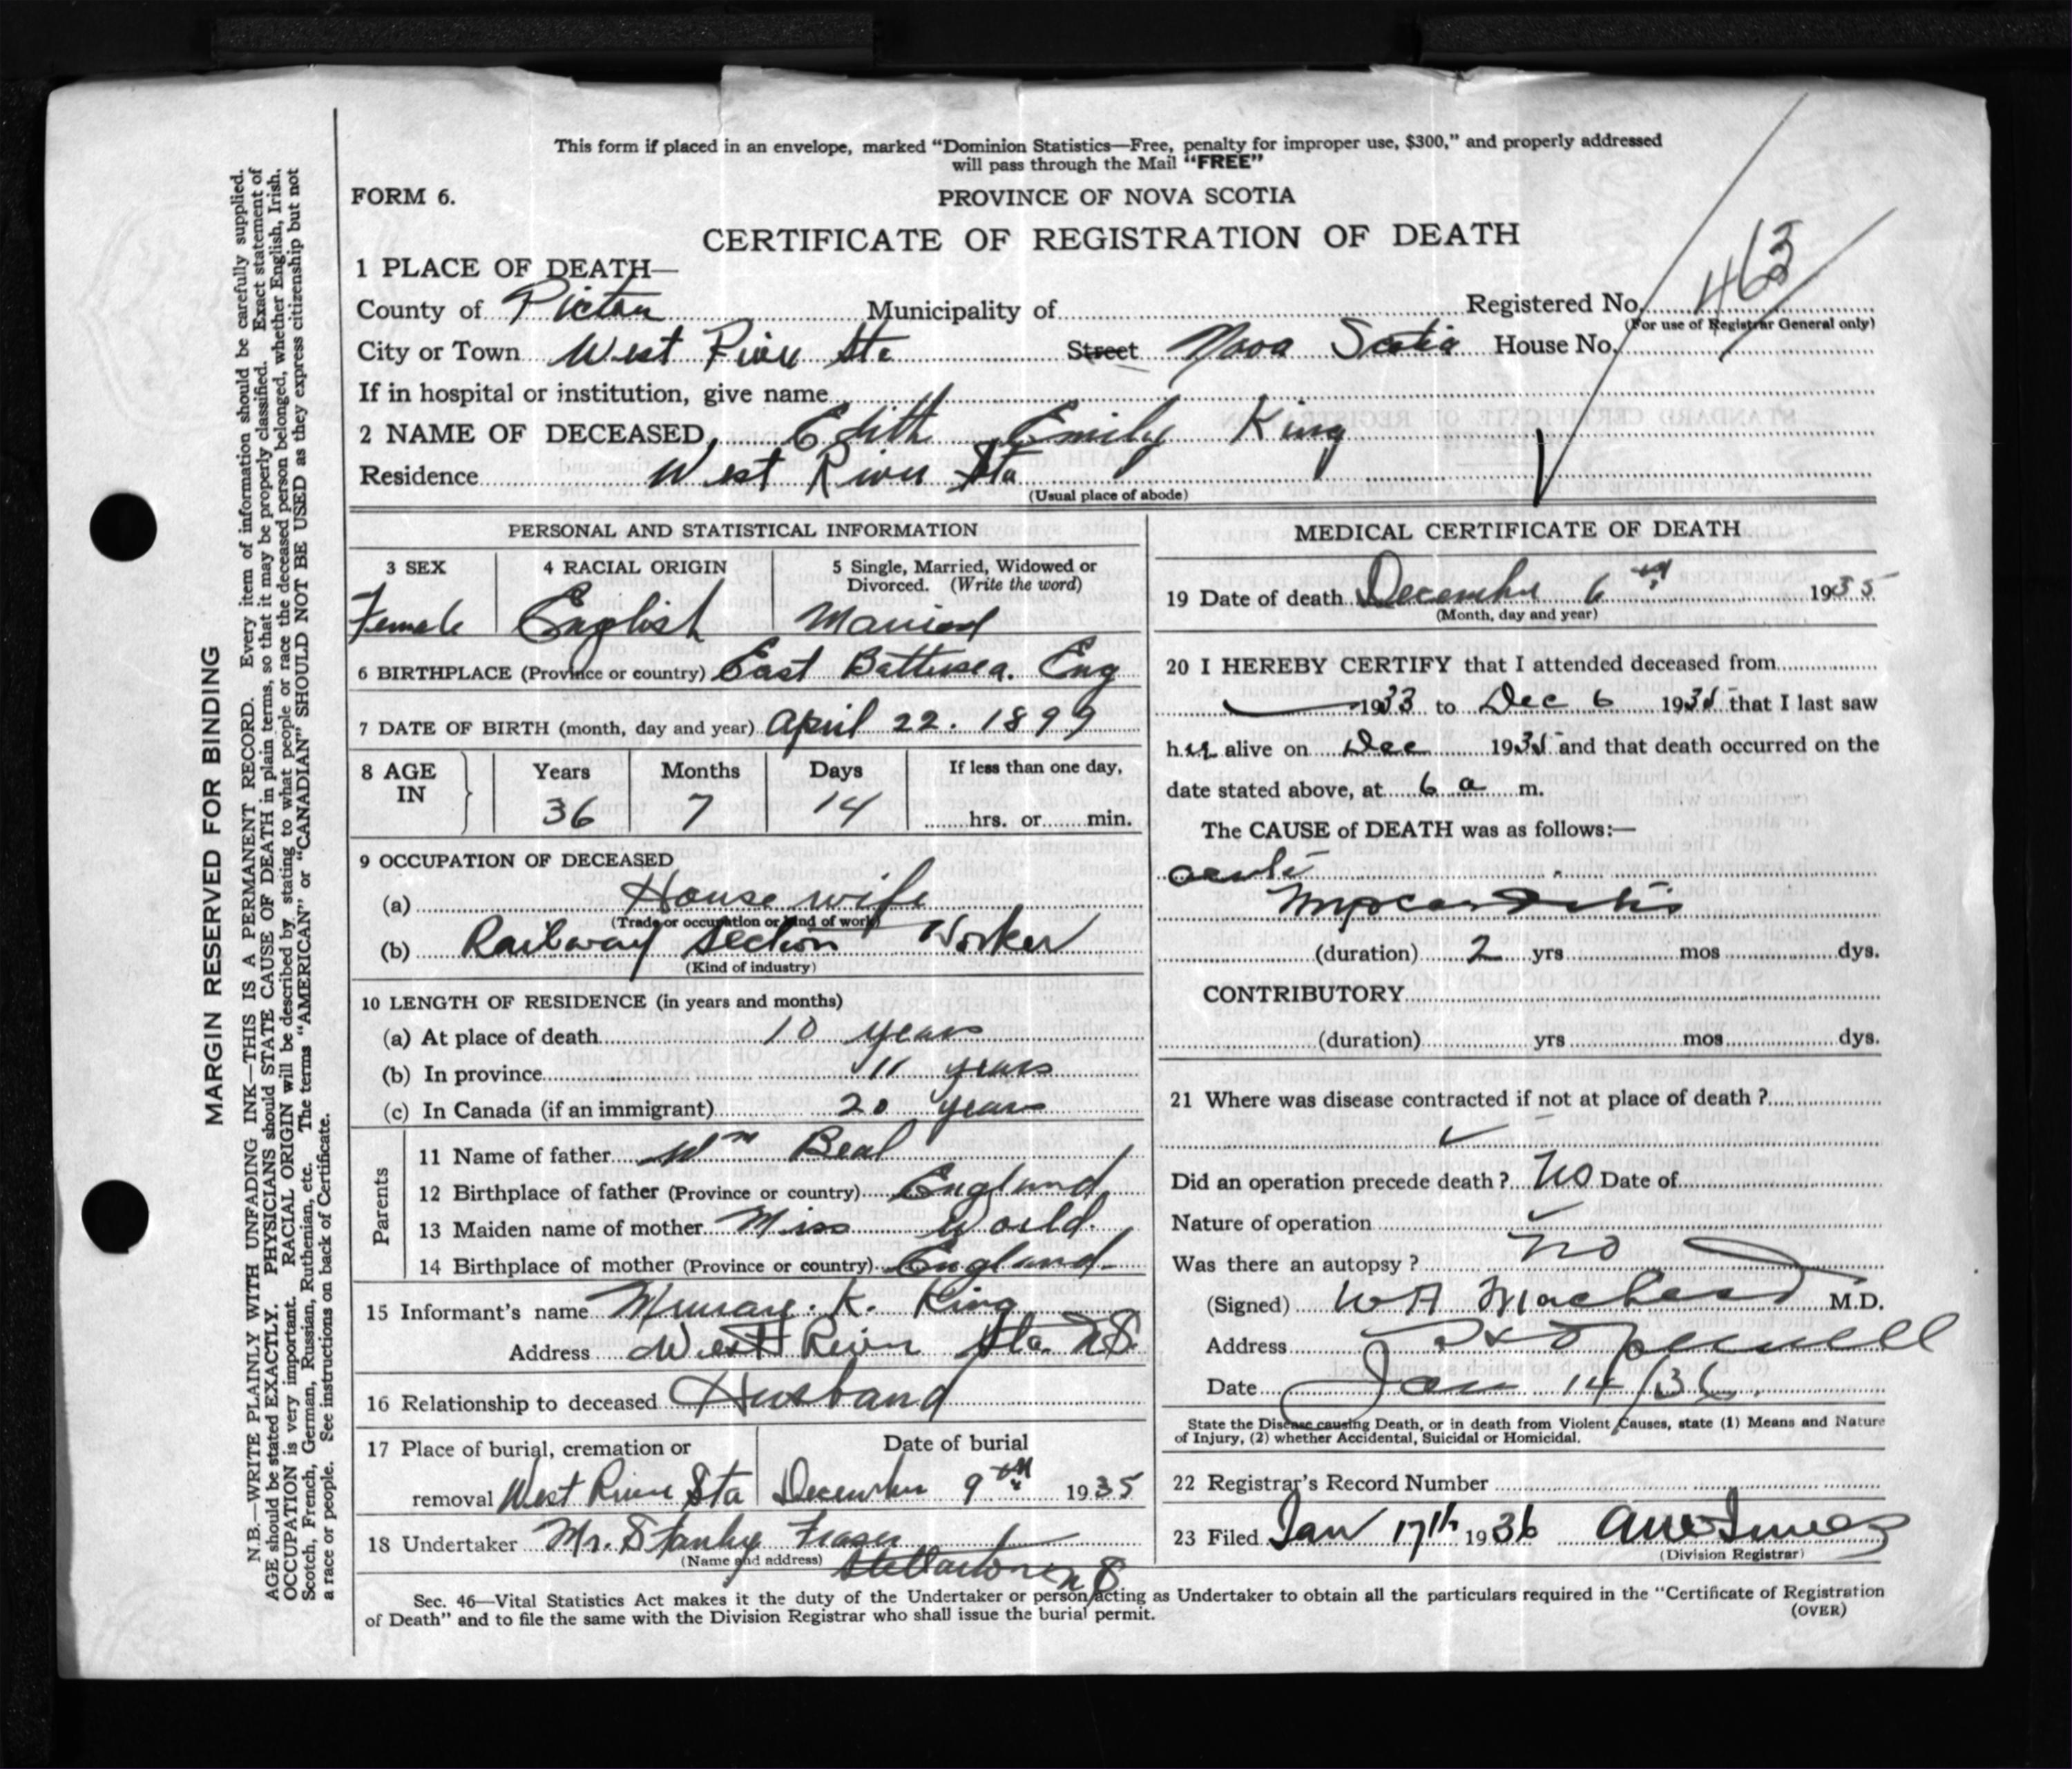 This form if placed in an envelope, marked "Dominion Statistics—Free, penalty for improper use, $300," and properly addressed
will pass through the Mail "FREE"
FORM 6.
PROVINCE OF NOVA SCOTIA
CERTIFICATE OF REGISTRATION OF DEATH
1 PLACE OF DEATH—
County of Pictou Municipality of Registered No. 463
(For use of Registrar General only)
City or Town West River Sta Street Nova Scotia House No.
If in hospital or institution, give name
2 NAME OF DECEASED, Edith Emily King
Residence West River Sta
(Usual place of abode)
PERSONAL AND STATISTICAL INFORMATION
3 SEX 4 RACIAL ORIGIN 5 Single, Married, Widowed or
Divorced. (Write the word)
Female English Married
6 BIRTHPLACE (Province or country) East Battersea. Eng
7 DATE OF BIRTH (month, day and year) April 22. 1899
8 AGE IN Years Months Days If less than one day,
36 7 14 hrs. or min.
9 OCCUPATION OF DECEASED
(a) House wife
(Trade or occupation or kind of work)
(b) Railway Section Worker
(Kind of industry)
10 LENGTH OF RESIDENCE (in years and months)
(a) At place of death 10 years
(b) In province 11 years
(c) In Canada (if an immigrant) 20 years
Parents
11 Name of father Wm Beal
12 Birthplace of father (Province or country) England
13 Maiden name of mother Miss World.
14 Birthplace of mother (Province or country) England.
15 Informant's name Murray. K. King
Address West River Sta. N S.
16 Relationship to deceased Husband
17 Place of burial, cremation or Date of burial
removal West River Sta December 9th 1935
18 Undertaker Mr. Stanley Fraser
(Name and address) Stellarton N S
MEDICAL CERTIFICATE OF DEATH
19 Date of death December 6th 1935
(Month, day and year)
20 I HEREBY CERTIFY that I attended deceased from
1933 to Dec 6 1935 that I last saw
her alive on Dec 1935 and that death occurred on the
date stated above, at 6 a m.
The CAUSE of DEATH was as follows:—
acute
Myocarditis
(duration) 2 yrs mos dys.
CONTRIBUTORY
(duration) yrs mos dys.
21 Where was disease contracted if not at place of death ?
Did an operation precede death ? No Date of
Nature of operation
Was there an autopsy ? no
(Signed) W A MacLeod M.D.
Address Hopewell
Date Jan 14/36.
State the Disease causing Death, or in death from Violent Causes, state (1) Means and Nature
of Injury, (2) whether Accidental, Suicidal or Homicidal.
22 Registrar's Record Number
23 Filed Jan 17th 1936
(Division Registrar)
Sec. 46—Vital Statistics Act makes it the duty of the Undertaker or person acting as Undertaker to obtain all the particulars required in the "Certificate of Registration
of Death" and to file the same with the Division Registrar who shall issue the burial permit.
(OVER)
MARGIN RESERVED FOR BINDING
N.B.—WRITE PLAINLY WITH UNFADING INK—THIS IS A PERMANENT RECORD. Every item of information should be carefully supplied.
AGE should be stated EXACTLY. PHYSICIANS should STATE CAUSE OF DEATH in plain terms, so that it may be properly classified. Exact statement of
OCCUPATION is very important. RACIAL ORIGIN will be described by stating to what people or race the deceased person belonged, whether English, Irish,
Scotch, French, German, Russian, Ruthenian, etc. The terms "AMERICAN" or "CANADIAN" SHOULD NOT BE USED as they express citizenship but not
a race or people. See instructions on back of Certificate.